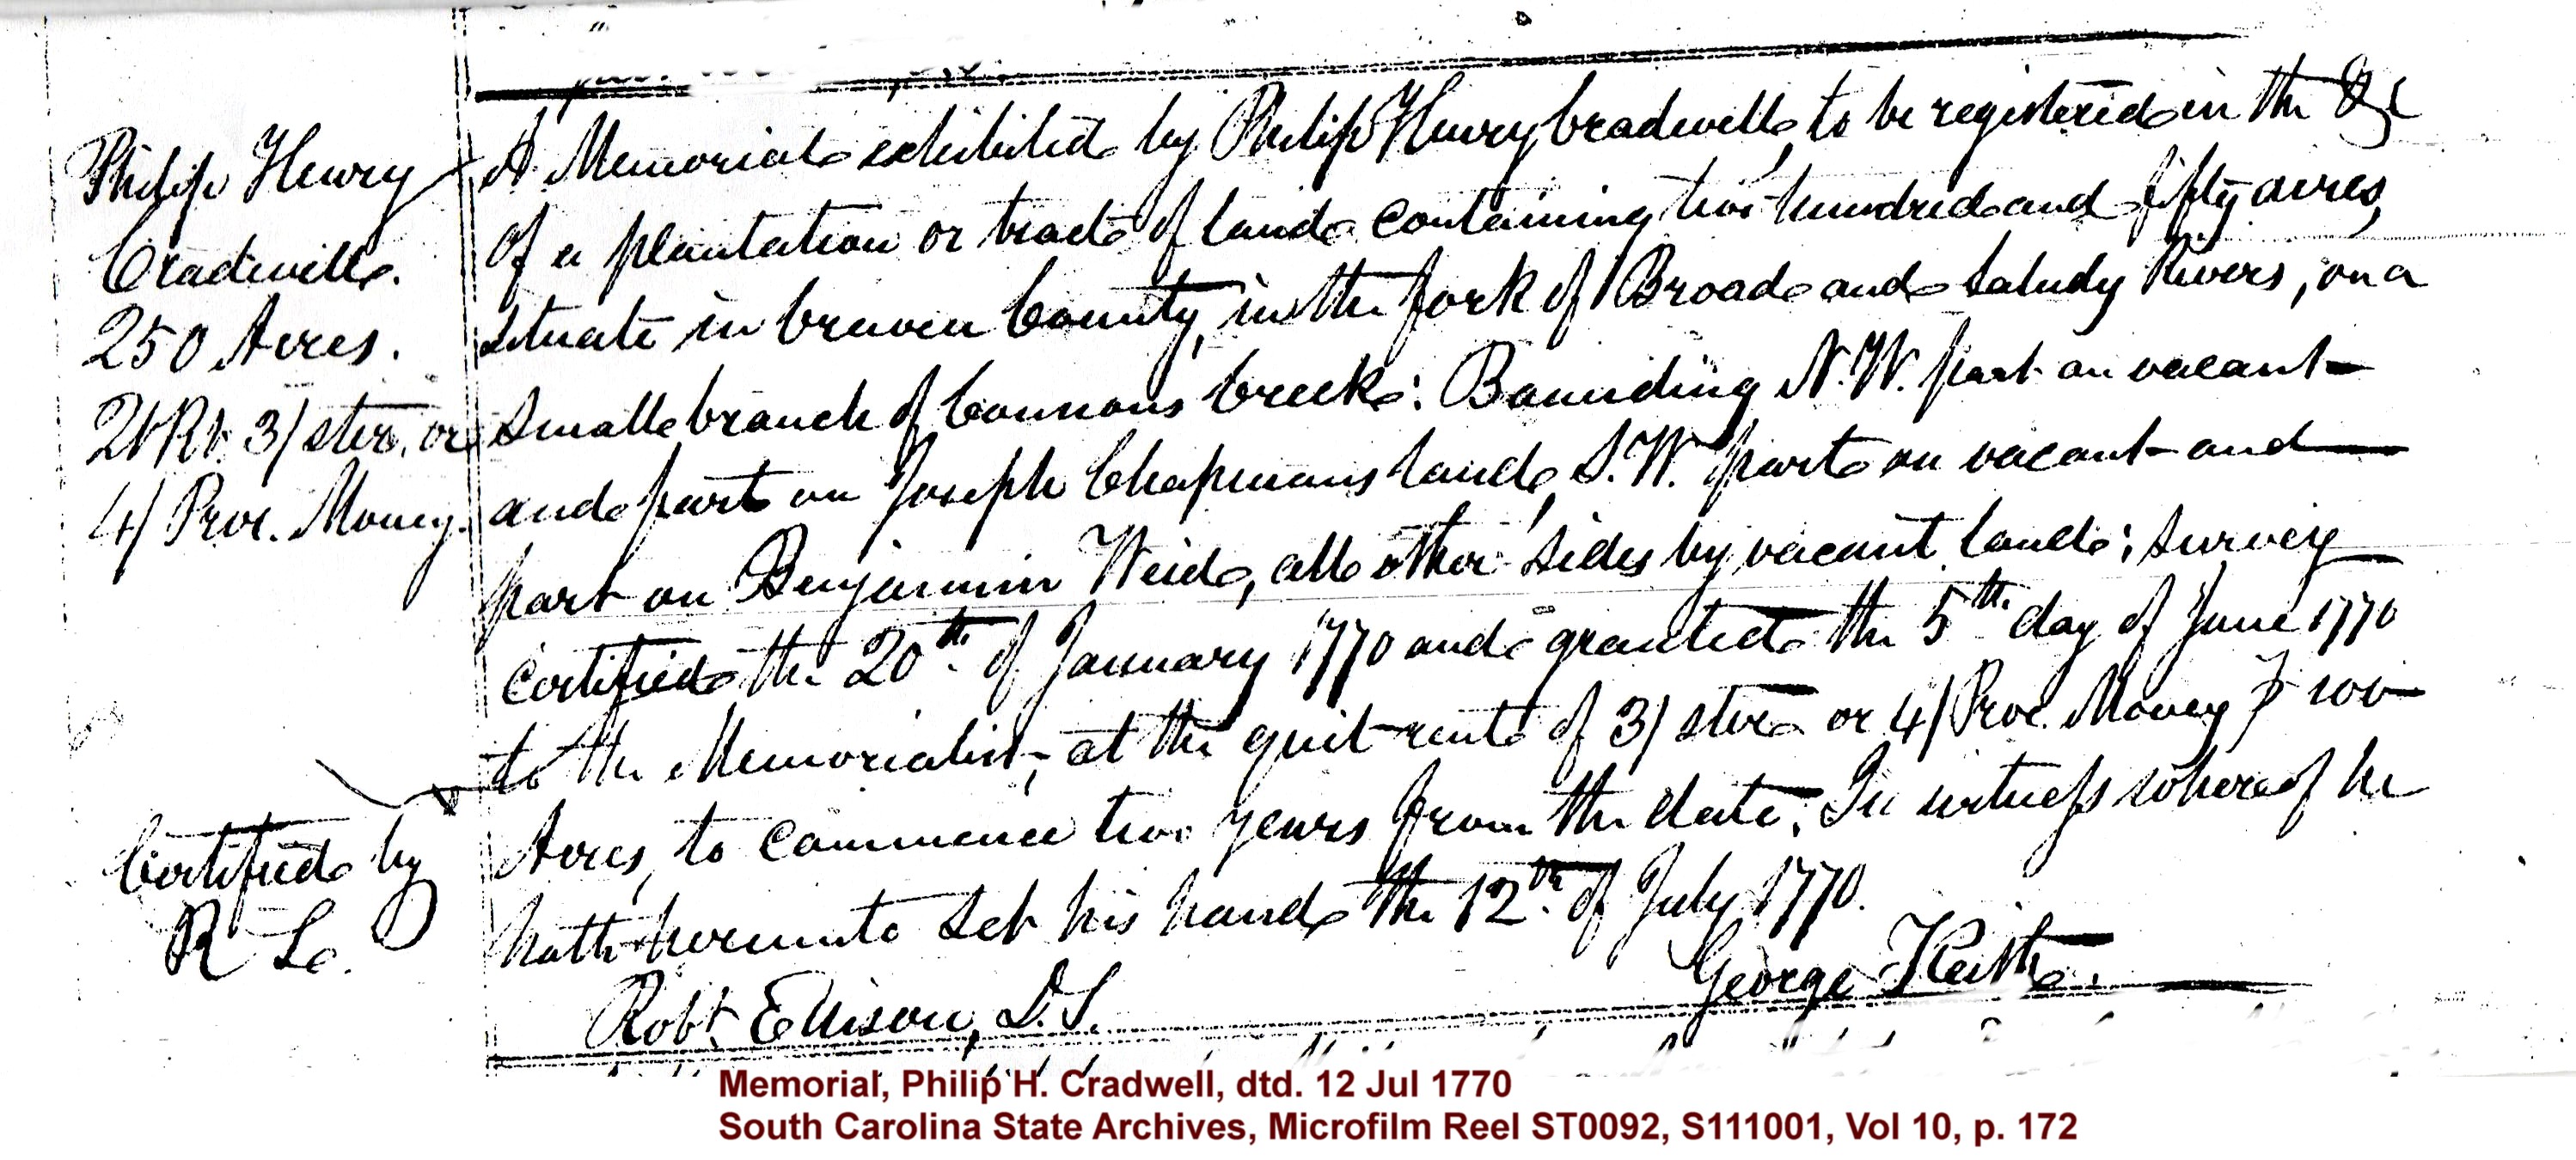 Philip Henry
Cradwell.
250 Acres.
Qt Rt 3/ ster. or
4/ Proc. Money.
A Memorial exhibited by Philip Henry Cradwell, to be registered in the &c
Of a plantation or tract of land containing two hundred and fifty acres,
situate in Craven County, in the fork of Broad and Saludy Rivers, on a
small branch of Cannons Creek: Bounding N.W. part on vacant
and part on Joseph Chapmans land, S.W. part on vacant and
part on Benjamin Weid, all other sides by vacant land; survey
certified the 20th. of January 1770 and granted the 5th. day of June 1770
to the Memorialist, at the quit rent of 3/ ster or 4/ Proc Money ⅌ 100
Acres, to commence two years from the date. In witness whereof he
hath hereunto set his hand the 12th. of July 1770.
Certified by
R L.
Robt. Ellison, D.S.
George Keith.
Memorial, Philip H. Cradwell, dtd. 12 Jul 1770
South Carolina State Archives, Microfilm Reel ST0092, S111001, Vol 10, p. 172